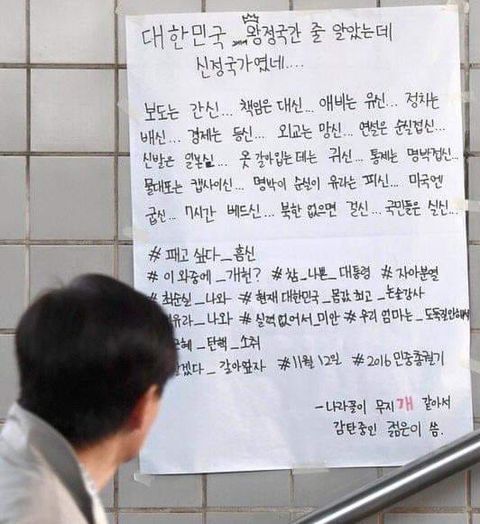 대한민국 왕정국간 줄 알았는데
신정국가였네....
보도는 간신... 책임은 대신... 애비는 유신... 정치는
배신... 경제는 등신... 외교는 망신... 연설은 순실접신...
신발은 일본실... 옷 갈아입는데는 귀신... 통제는 명박접신...
물대포는 캡사이신... 명박이 순실이 유라는 피신... 미국엔
굽신... 7시간 베드신... 북한 없으면 걸신... 국민들은 실신...
# 패고 싶다_흠신
# 이 와중에_개헌? #참_나쁜_대통령 #자아분열
#최순실_나와 #현재 대한민국_몸값 최고_논술강사
유라_나와 #실력 없어서_미안 #우리 엄마는_도둑질안해서
_탄핵_소취
_갈아엎자 #11월 12일 #2016 민중총궐기
-나라꼴이 무지개 같아서
감탄중인 젊은이 씀.